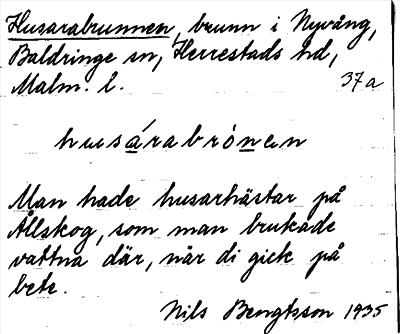 Husarabrunnen, brunn i Nyvång,
Baldringe sn, Herrestads hd,
Malm. l.
37a
husárabrónen
Man hade husarhästar på
Allskog, som man brukade
vattna där, när di gick på
bete.
Nils Bengtsson 1935